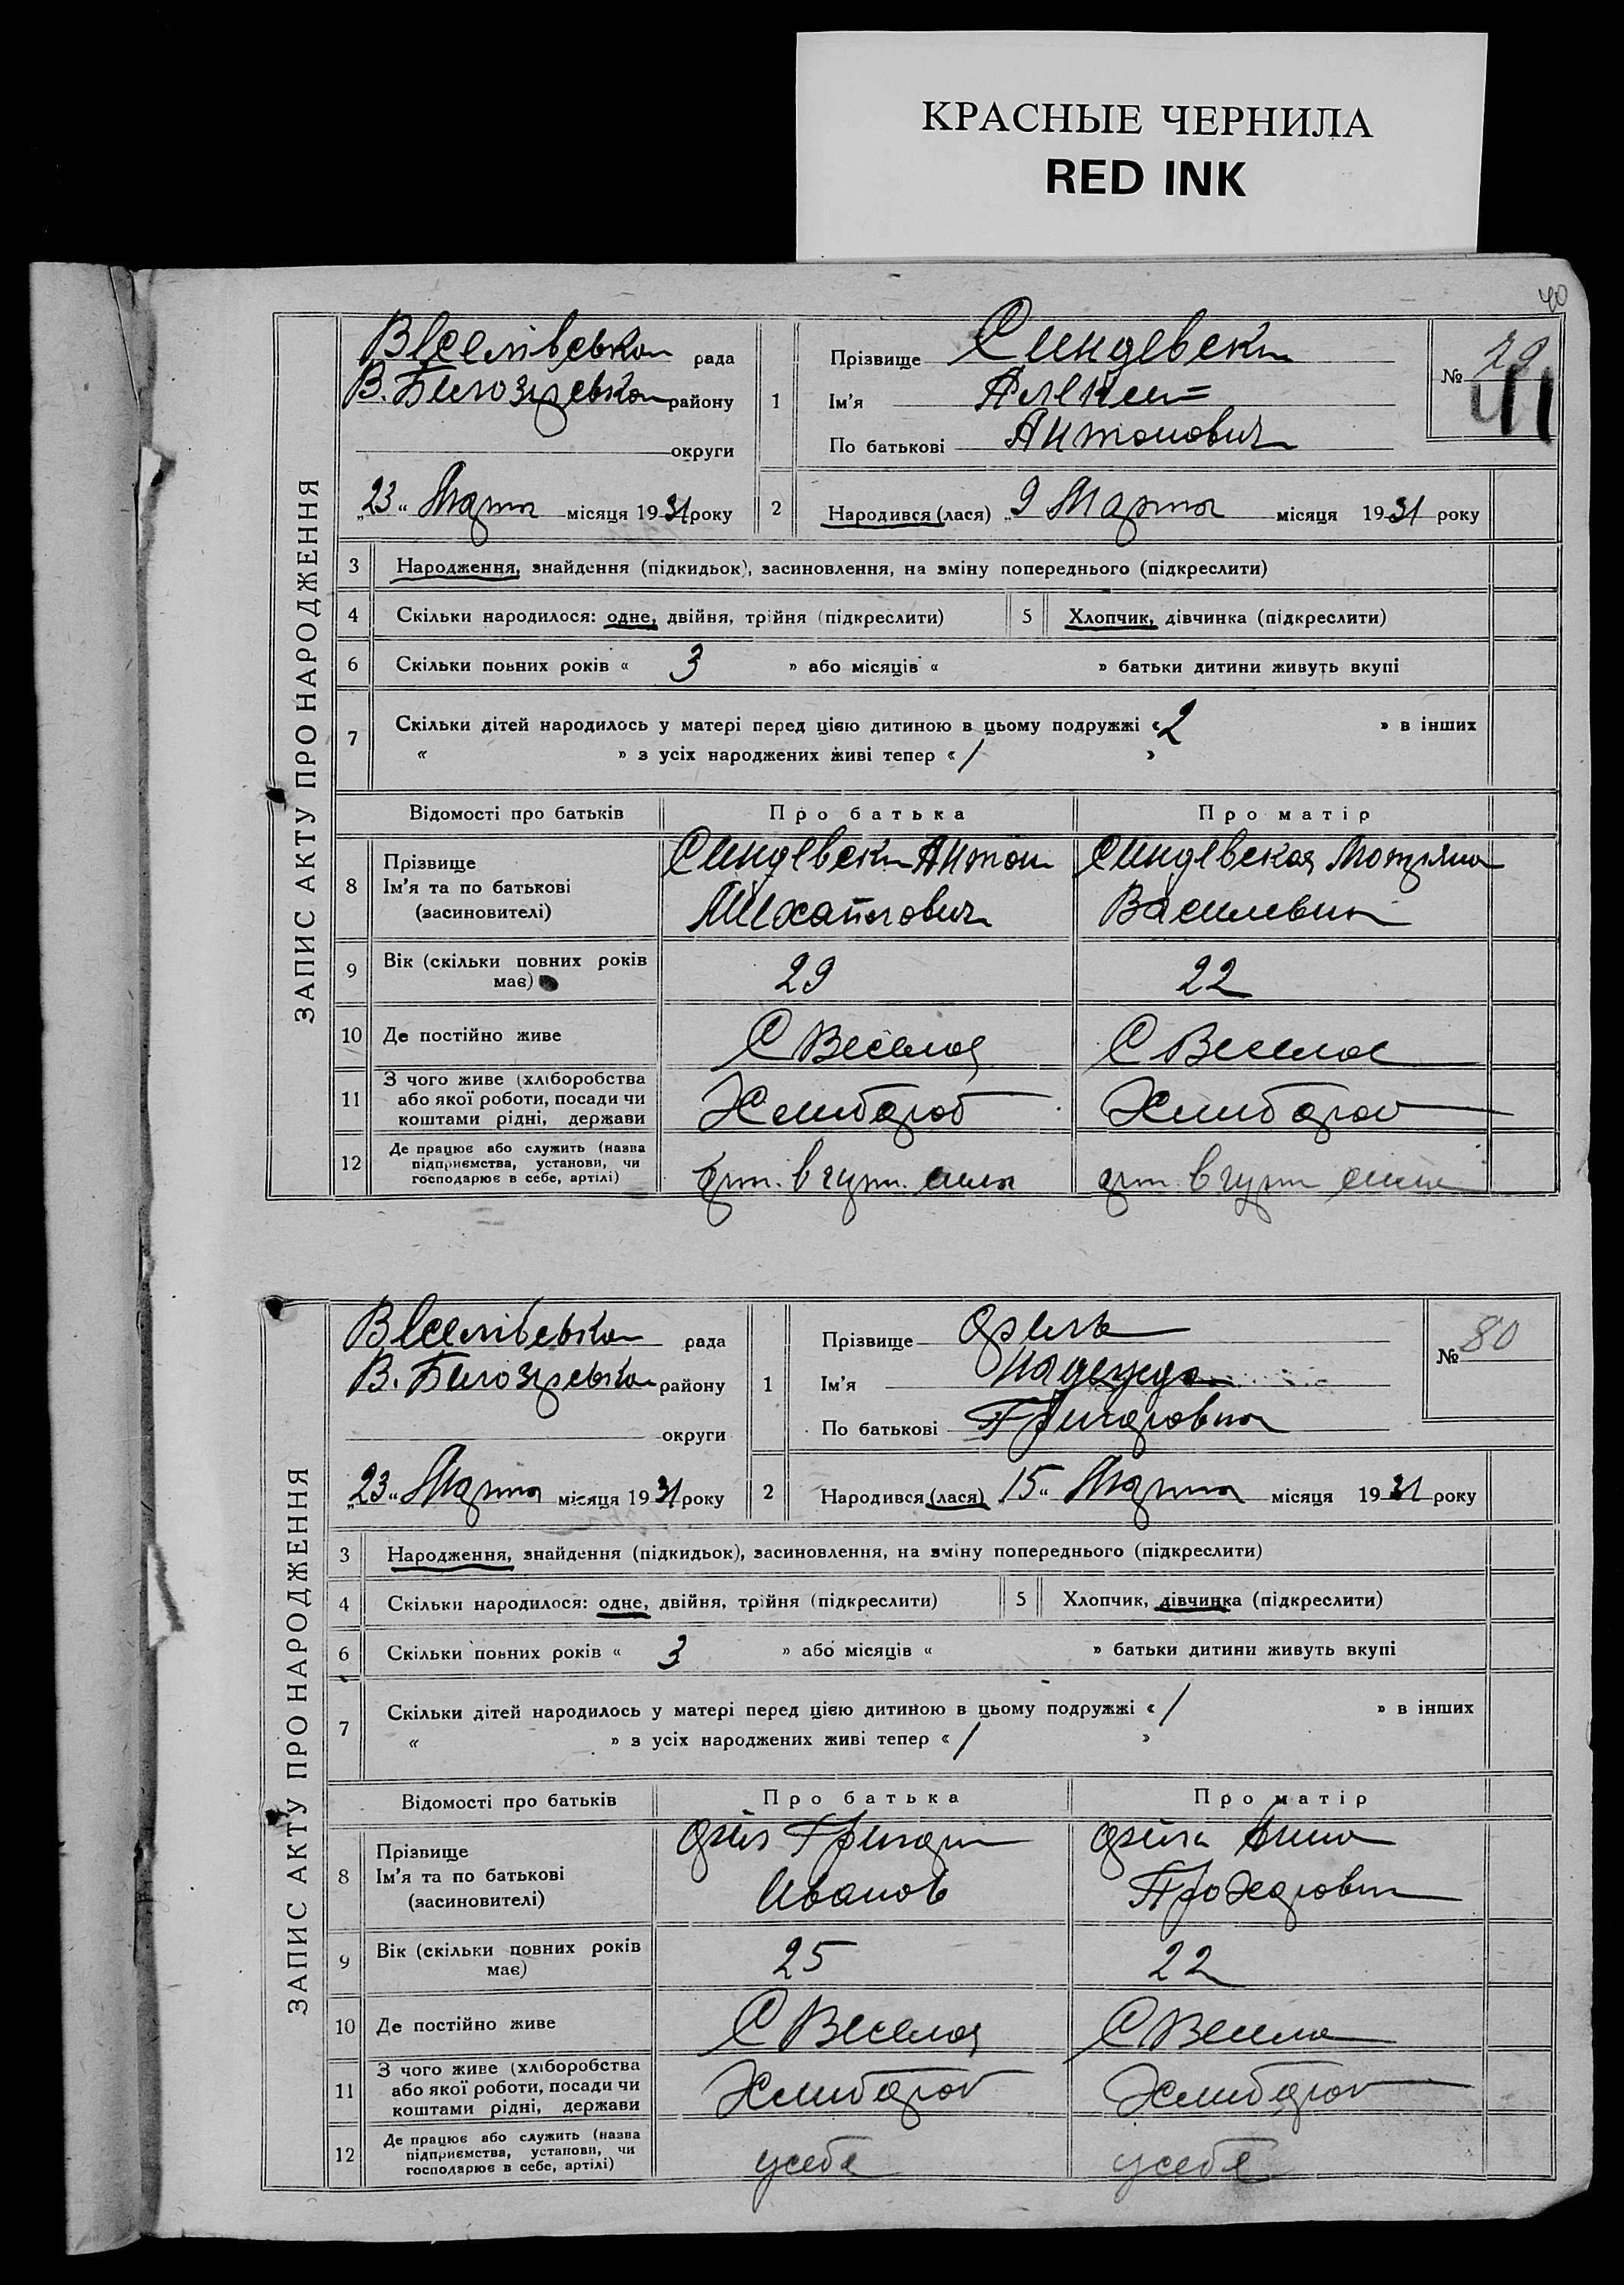 КРАСНЫЕ ЧЕРНИЛА
RED INK
40
ЗАПИС АКТУ ПРО НАРОДЖЕННЯ
Веселівської рада
В. Билозирсько району
округи
„23“ Марта місяця 1931 року
1
Прізвище
Ім'я
По батькові Антонович
№
41
2
Народився (лася) „9 Марта місяця 1931 року
3 Народження, знайдення (підкидьок), засиновлення, на зміну попереднього (підкреслити)
4 Скільки народилося: одне, двійня, трійня (підкреслити)
5 Хлопчик, дівчинка (підкреслити)
6 Скільки повних років « 3 » або місяців « » батьки дитини живуть вкупі
7 Скільки дітей народилось у матері перед цією дитиною в цьому подружжі «2 » в інших
« » з усіх народжених живі тепер «1 »
Відомості про батьків Про батька Про матір
8 Прізвище
Ім'я та по батькові
(засиновителі)
Антон
Михайлович
Васильевна
9 Вік (скільки повних років має) 29 22
10 Де постійно живе С Веселое С Веселое
11 З чого живе (хліборобства
або якої роботи, посади чи
коштами рідні, держави
Хлибороб
12 Де працює або служить (назва
підприємства, установи, чи
господарює в себе, артілі)
ЗАПИС АКТУ ПРО НАРОДЖЕННЯ
Веселівської рада
В. Билозирсько району
округи
„23“ Марта місяця 1931 року
1
Прізвище
Ім'я Надежда
По батькові Григоровна
№ 80
2
Народився (лася) „15“ Марта місяця 1931 року
3 Народження, знайдення (підкидьок), засиновлення, на зміну попереднього (підкреслити)
4 Скільки народилося: одне, двійня, трійня (підкреслити)
5 Хлопчик, дівчинка (підкреслити)
6 Скільки повних років « 3 » або місяців « » батьки дитини живуть вкупі
7 Скільки дітей народилось у матері перед цією дитиною в цьому подружжі «1 » в інших
« » з усіх народжених живі тепер «1 »
Відомості про батьків Про батька Про матір
8 Прізвище
Ім'я та по батькові
(засиновителі)
Иванов
9 Вік (скільки повних років має) 25 22
10 Де постійно живе С Веселое С Весело
11 З чого живе (хліборобства
або якої роботи, посади чи
коштами рідні, держави
12 Де працює або служить (назва
підприємства, установи, чи
господарює в себе, артілі)
усебе усебе